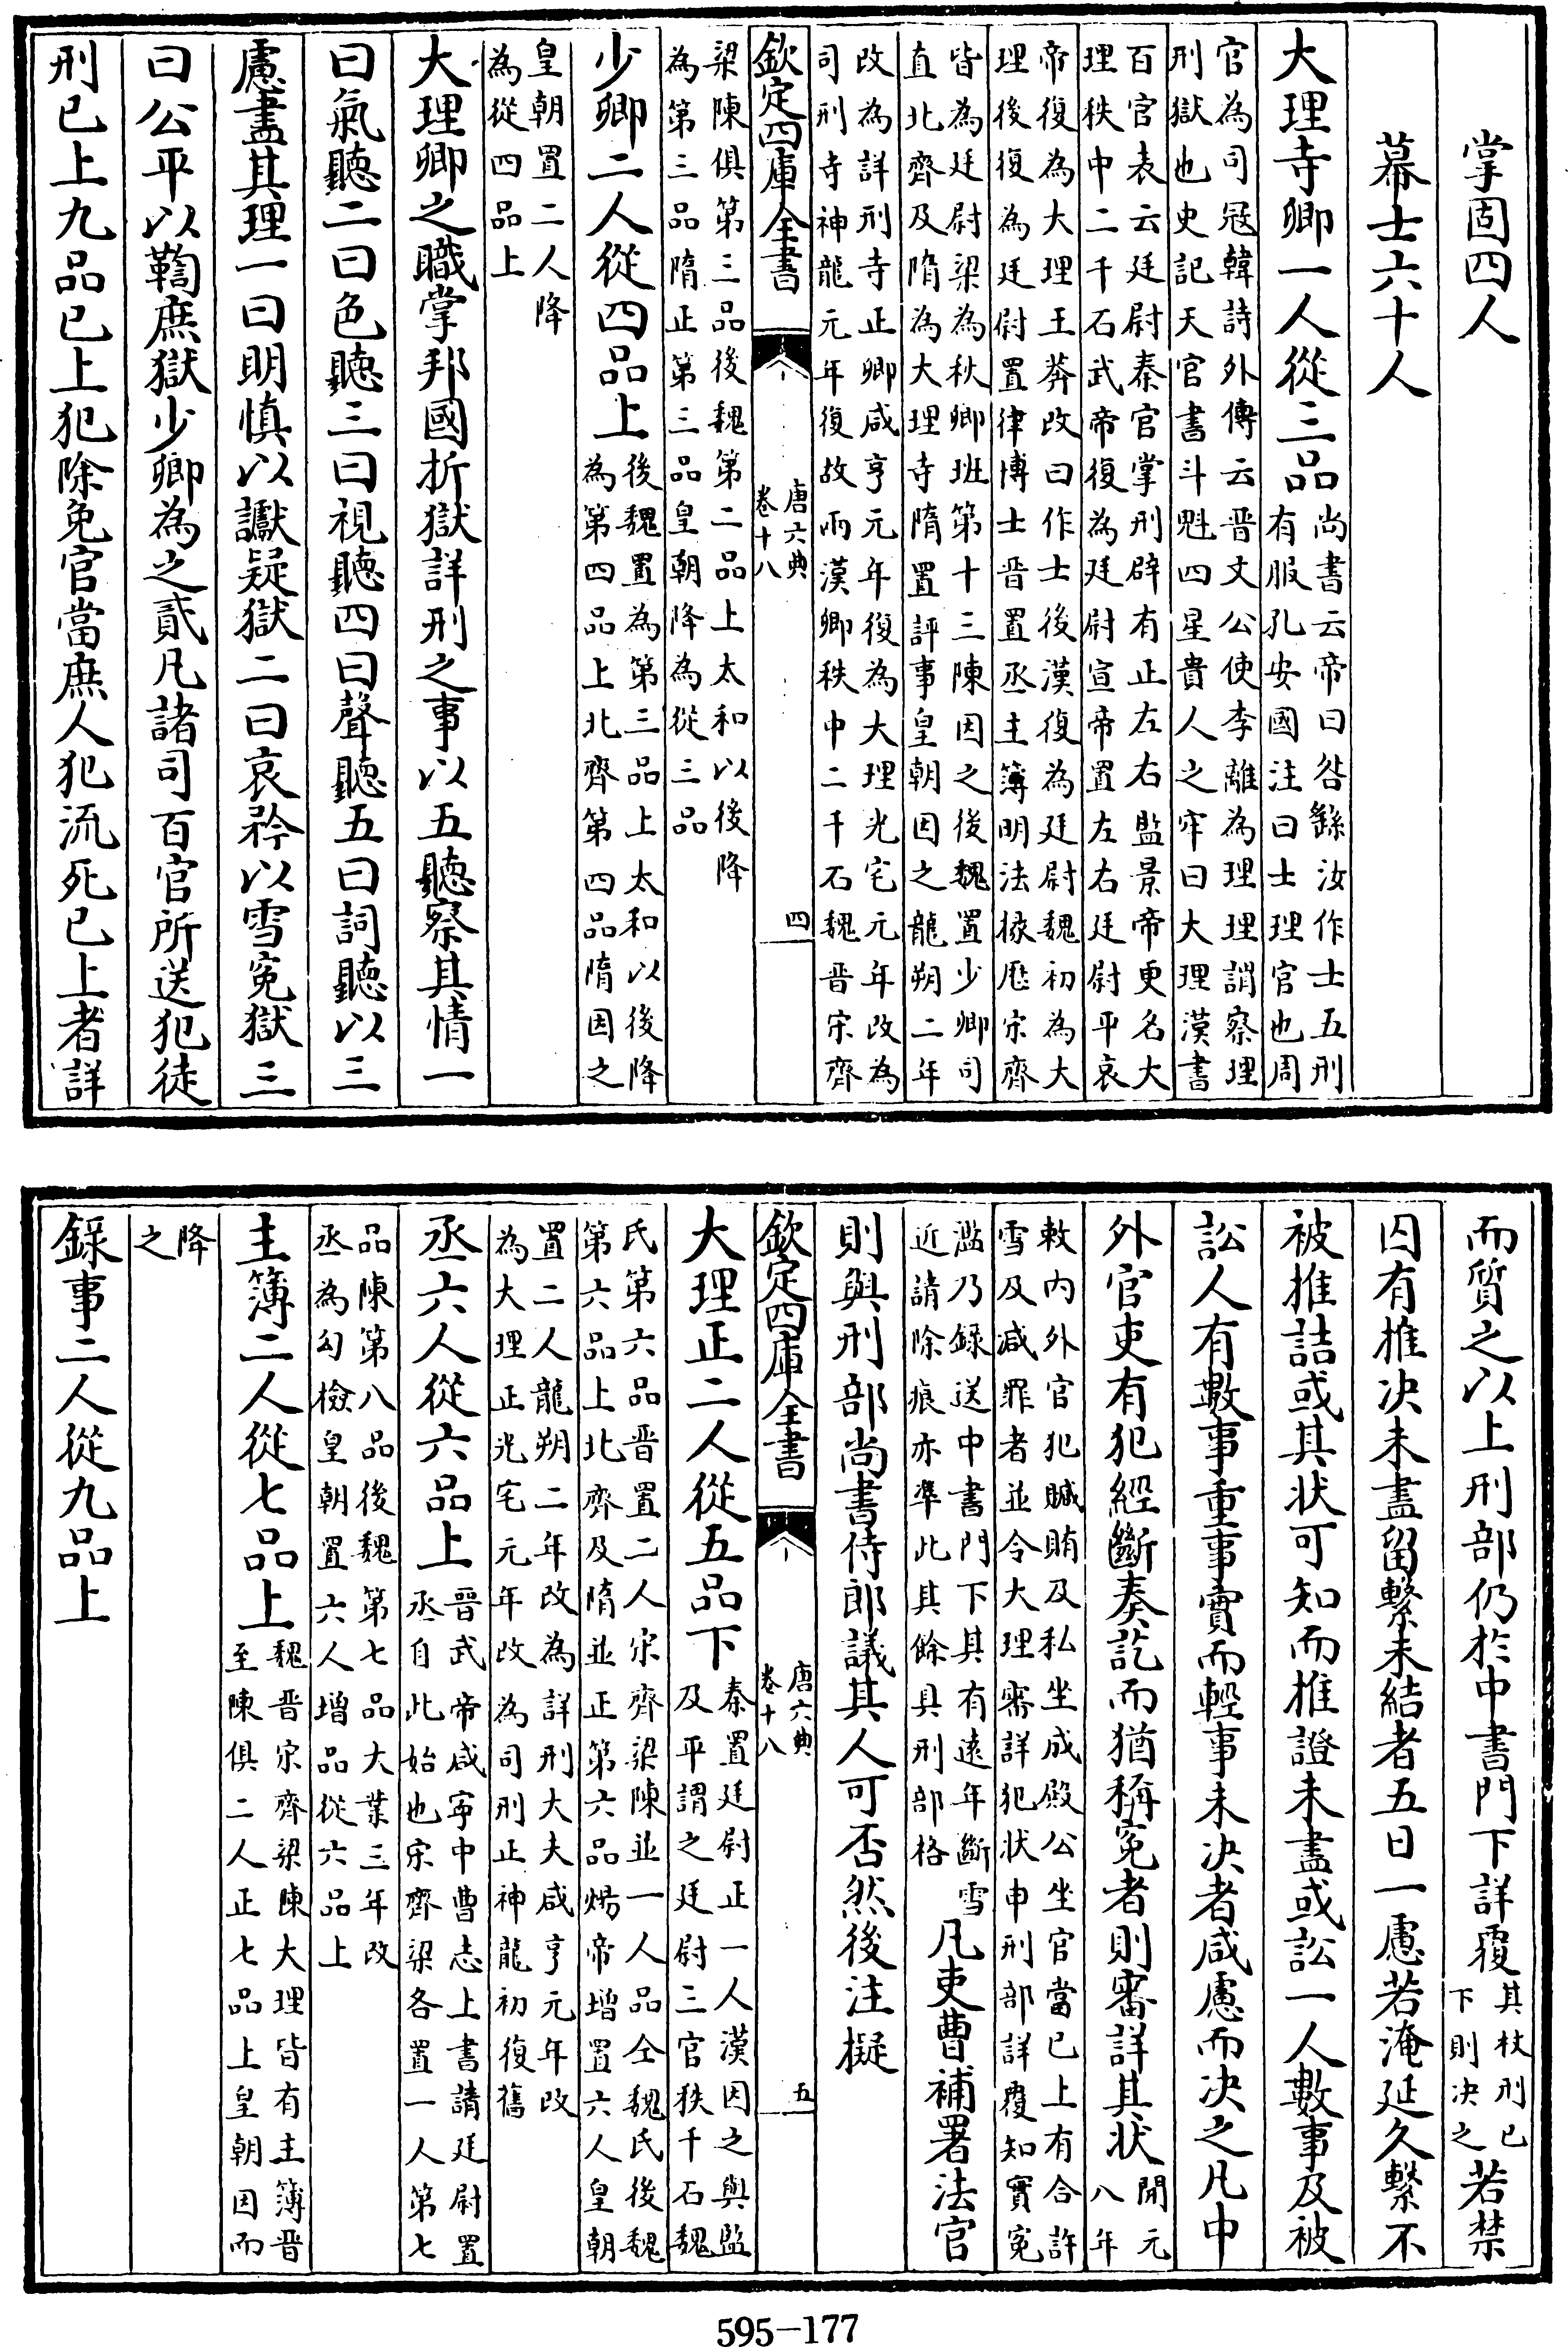 掌固四人
幕士六十人
大理寺卿一人從三品尚書云帝曰咎繇汝作士五刑
有服孔安國注曰士理官也周
官為司冦韓詩外傳云晋文公使李離為理理謂察理
刑獄也史記天官書斗魁四星貴人之牢曰大理漢書
百官表云廷尉秦官掌刑辟有正左右監景帝更名大
理秩中二千石武帝復為廷尉宣帝置左右廷尉平哀
帝復為大理王莽改曰作士後漢復為廷尉魏初為大
理後復為廷尉置律博士晋置丞主簿明法掾歴宋齊
皆為廷尉梁為秋卿班第十三陳因之後魏置少卿司
直北齊及隋為大理寺隋置評事皇朝因之龍朔二年
改為詳刑寺正卿咸亨元年復為大理光宅元年改為
司刑寺神龍元年復故兩漢卿秩中二千石魏晋宋齊
欽定四庫全書
唐六典
卷十八
四
梁陳俱第三品後魏第二品上太和以後降
為第三品隋正第三品皇朝降為從三品
少卿二人從四品上後魏置為第三品上太和以後降
為第四品上北齊第四品隋因之
皇朝置二人降
為從四品上
大理卿之職掌邦國折獄詳刑之事以五聽察其情一
曰氣聽二曰色聽三曰視聽四曰聲聽五曰詞聽以三
慮盡其理一曰明慎以讞疑獄二曰哀矜以雪寃獄三
曰公平以鞫庶獄少卿為之貳凡諸司百官所送犯徒
刑已上九品已上犯除免官當庶人犯流死已上者詳
而質之以上刑部仍於中書門下詳覆其杖刑已
下則決之若禁
囚有推决未盡留繫未結者五日一慮若淹延久繫不
被推詰或其狀可知而推證未盡或訟一人數事及被
訟人有數事重事實而輕事未决者咸慮而决之凡中
外官吏有犯經斷奏訖而猶稱寃者則審詳其狀開元
八年
敕内外官犯贓賄及私坐成殿公坐官當已上有合許
雪及減罪者並令大理審詳犯狀申刑部詳覆知實寃
濫乃録送中書門下其有遠年斷雪
近請除痕亦凖此其餘具刑部格凡吏曹補署法官
則與刑部尚書侍郎議其人可否然後注擬
欽定四庫全書
唐六典
卷十八
五
大理正二人從五品下秦置廷尉正一人漢因之與監
及平謂之廷尉三官秩千石魏
氏第六品晋置二人宋齊梁陳並一人品仝魏氏後魏
第六品上北齊及隋並正第六品煬帝增置六人皇朝
置二人龍朔二年改為詳刑大夫咸亨元年改
為大理正光宅元年改為司刑正神龍初復舊
丞六人從六品上晋武帝咸寜中曹志上書請廷尉置
丞自此始也宋齊梁各置一人第七
品陳第八品後魏第七品大業三年改
丞為勾檢皇朝置六人增品從六品上
主簿二人從七品上魏晋宋齊梁陳大理皆有主簿晋
至陳俱二人正七品上皇朝因而
降
之
録事二人從九品上
595-177